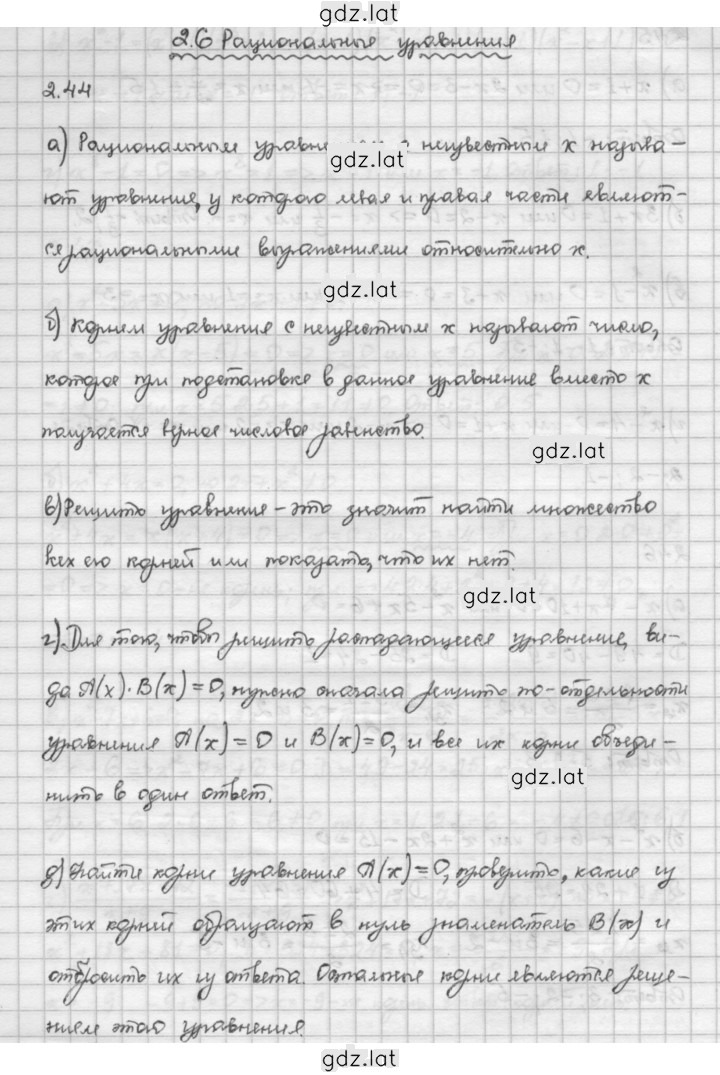 gdz.lat
2.6 Рациональные уравнения
2.44
а) Рациональным с неизвестным x называ-
gdz.lat
ют уравнение, у которого левая и правая части являют-
ся рациональными выражениями относительно x.
gdz.lat
б) Корнем уравнения с неизвестным x называют число,
которое при подстановке в данное уравнение вместо x
получается верное числовое равенство.
gdz.lat
в) Решить уравнение - это значит найти множество
всех его корней или показать, что их нет.
gdz.lat
г) Для того, чтобы решить распадающееся уравнение, ви-
да A(x)·B(x)=0, нужно сначала решить по-отдельности
уравнения A(x)=0 и B(x)=0, и все их корни объеди-
gdz.lat
нить в один ответ.
д) Найти корни уравнения A(x)=0, проверить, какие из
этих корней обращают в нуль знаменатель B(x) и
отбросить их из ответа. Остальные корни являются реше-
нием этого уравнения.
gdz.lat